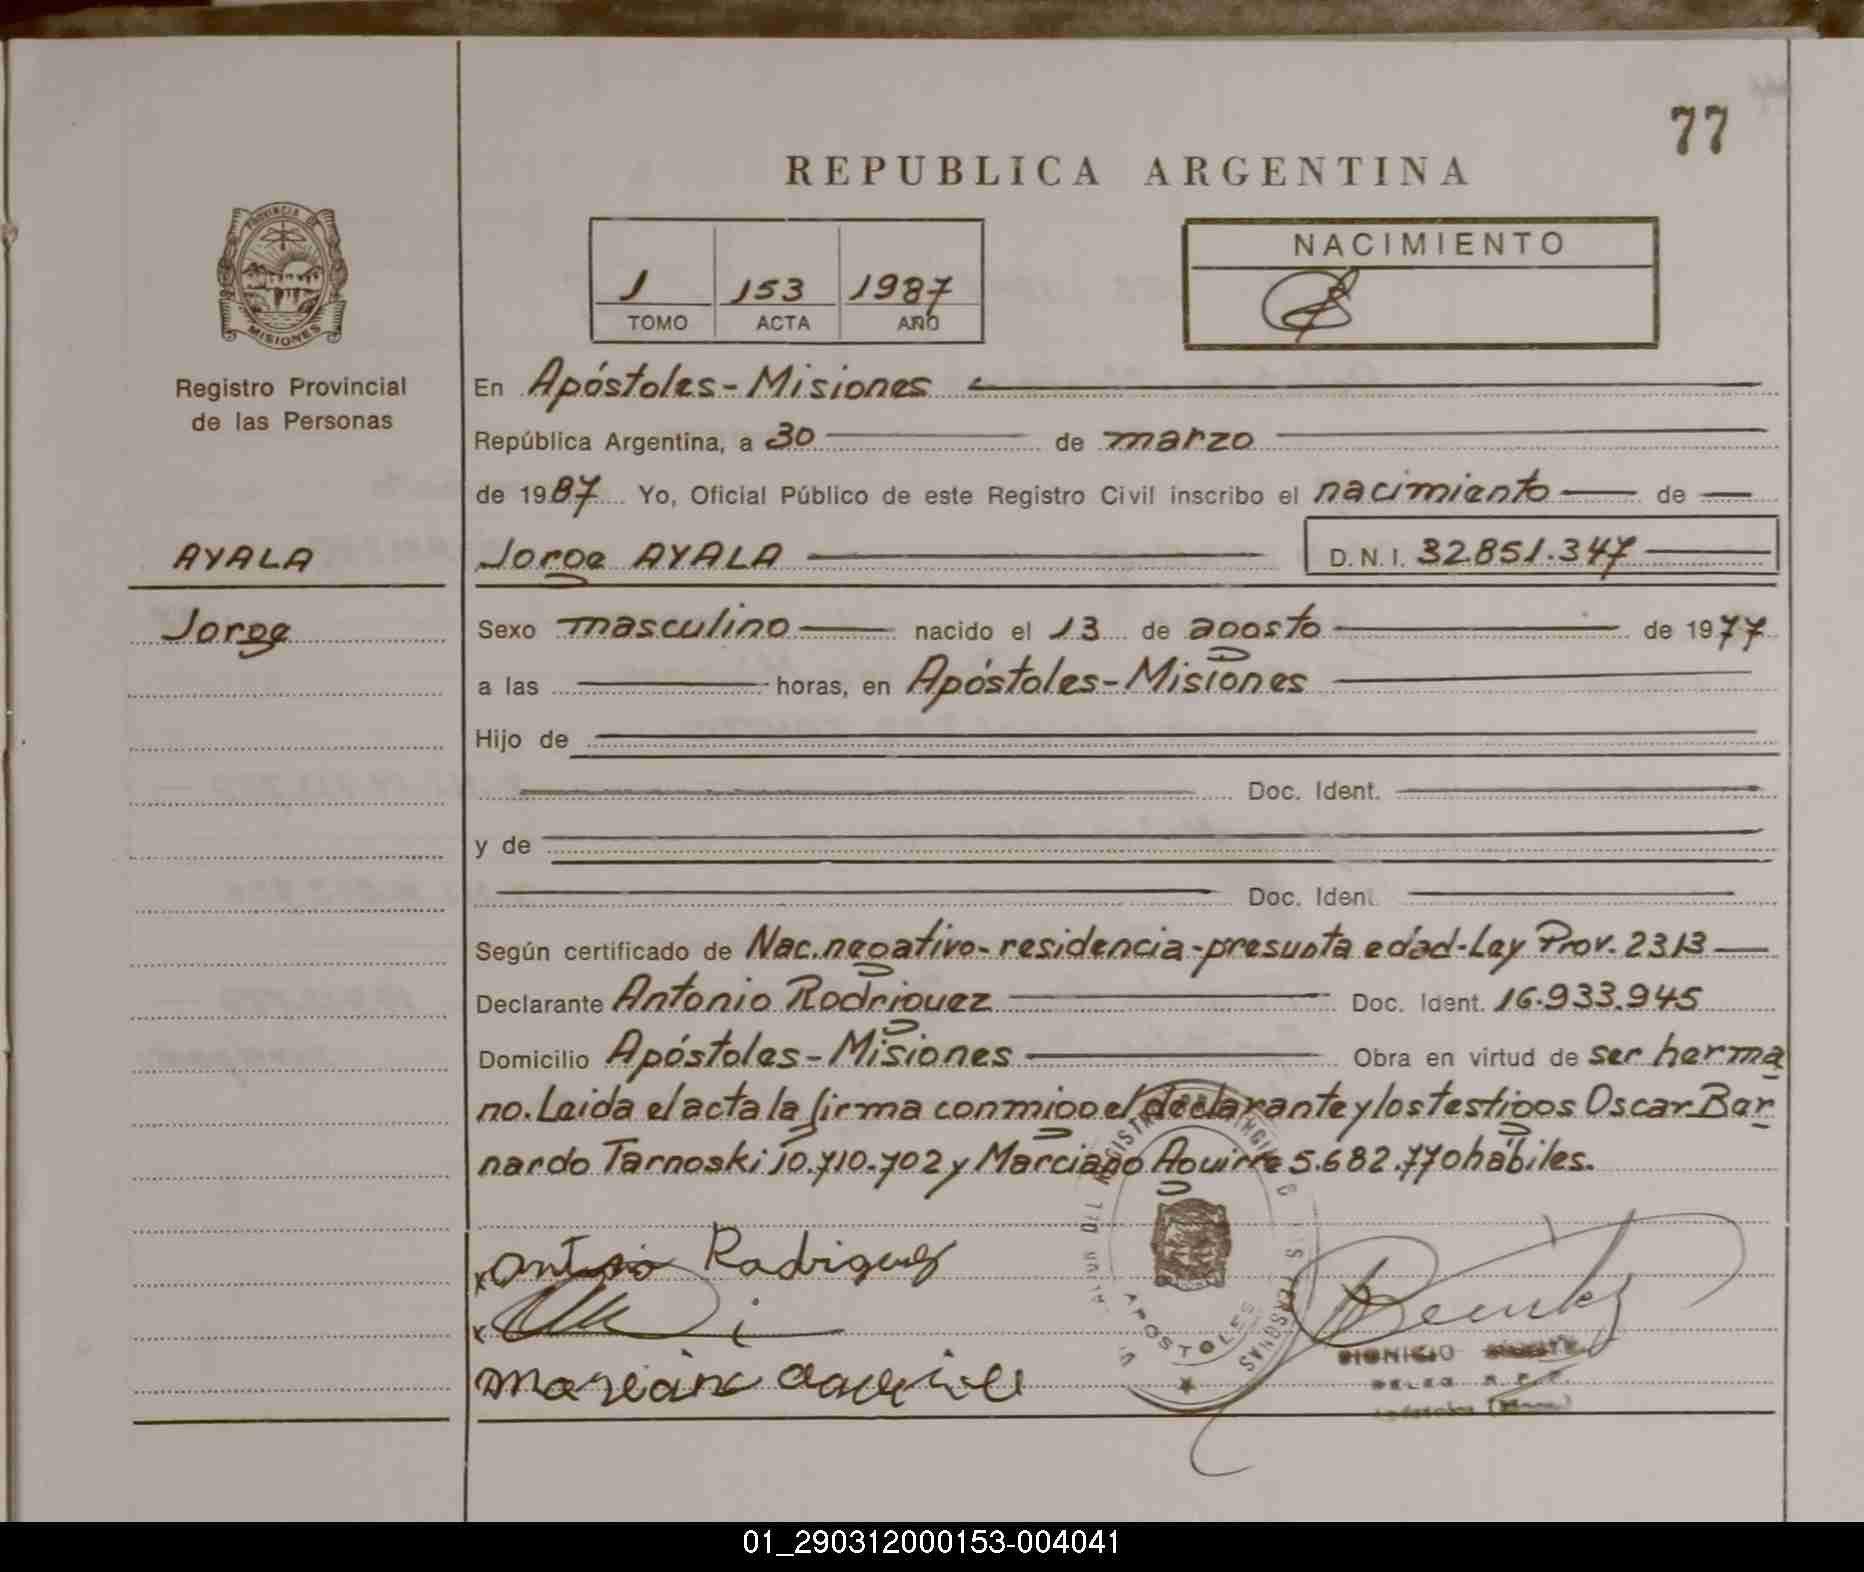 77
REPUBLICA ARGENTINA
PROVINCIA DE
MISIONES
Registro Provincial
de las Personas
1 153 1987
TOMO ACTA AÑO
NACIMIENTO
En Apóstoles - Misiones
República Argentina, a 30 de marzo
de 1987 Yo, Oficial Público de este Registro Civil inscribo el nacimiento de
AYALA
Jorge AYALA D.N.I. 32.851.347
Jorge
Sexo masculino nacido el 13 de agosto de 1977
a las horas, en Apóstoles - Misiones
Hijo de
Doc. Ident.
y de
Doc. Ident.
Según certificado de Nac. negativo - residencia - presunta edad - Ley Prov. 2313
Declarante Antonio Rodriguez Doc. Ident. 16.933.945
Domicilio Apóstoles - Misiones Obra en virtud de ser herma
no. Leida el acta la firma conmigo el declarante y los testigos Oscar Ber
nardo Tarnoski 10.710.702 y Marciano Aguirre 5.682.770 hábiles.
x Antonio Rodriguez
x
APOSTOLES
DIONICIO
DELEG. R. P. P.
01_290312000153-004041